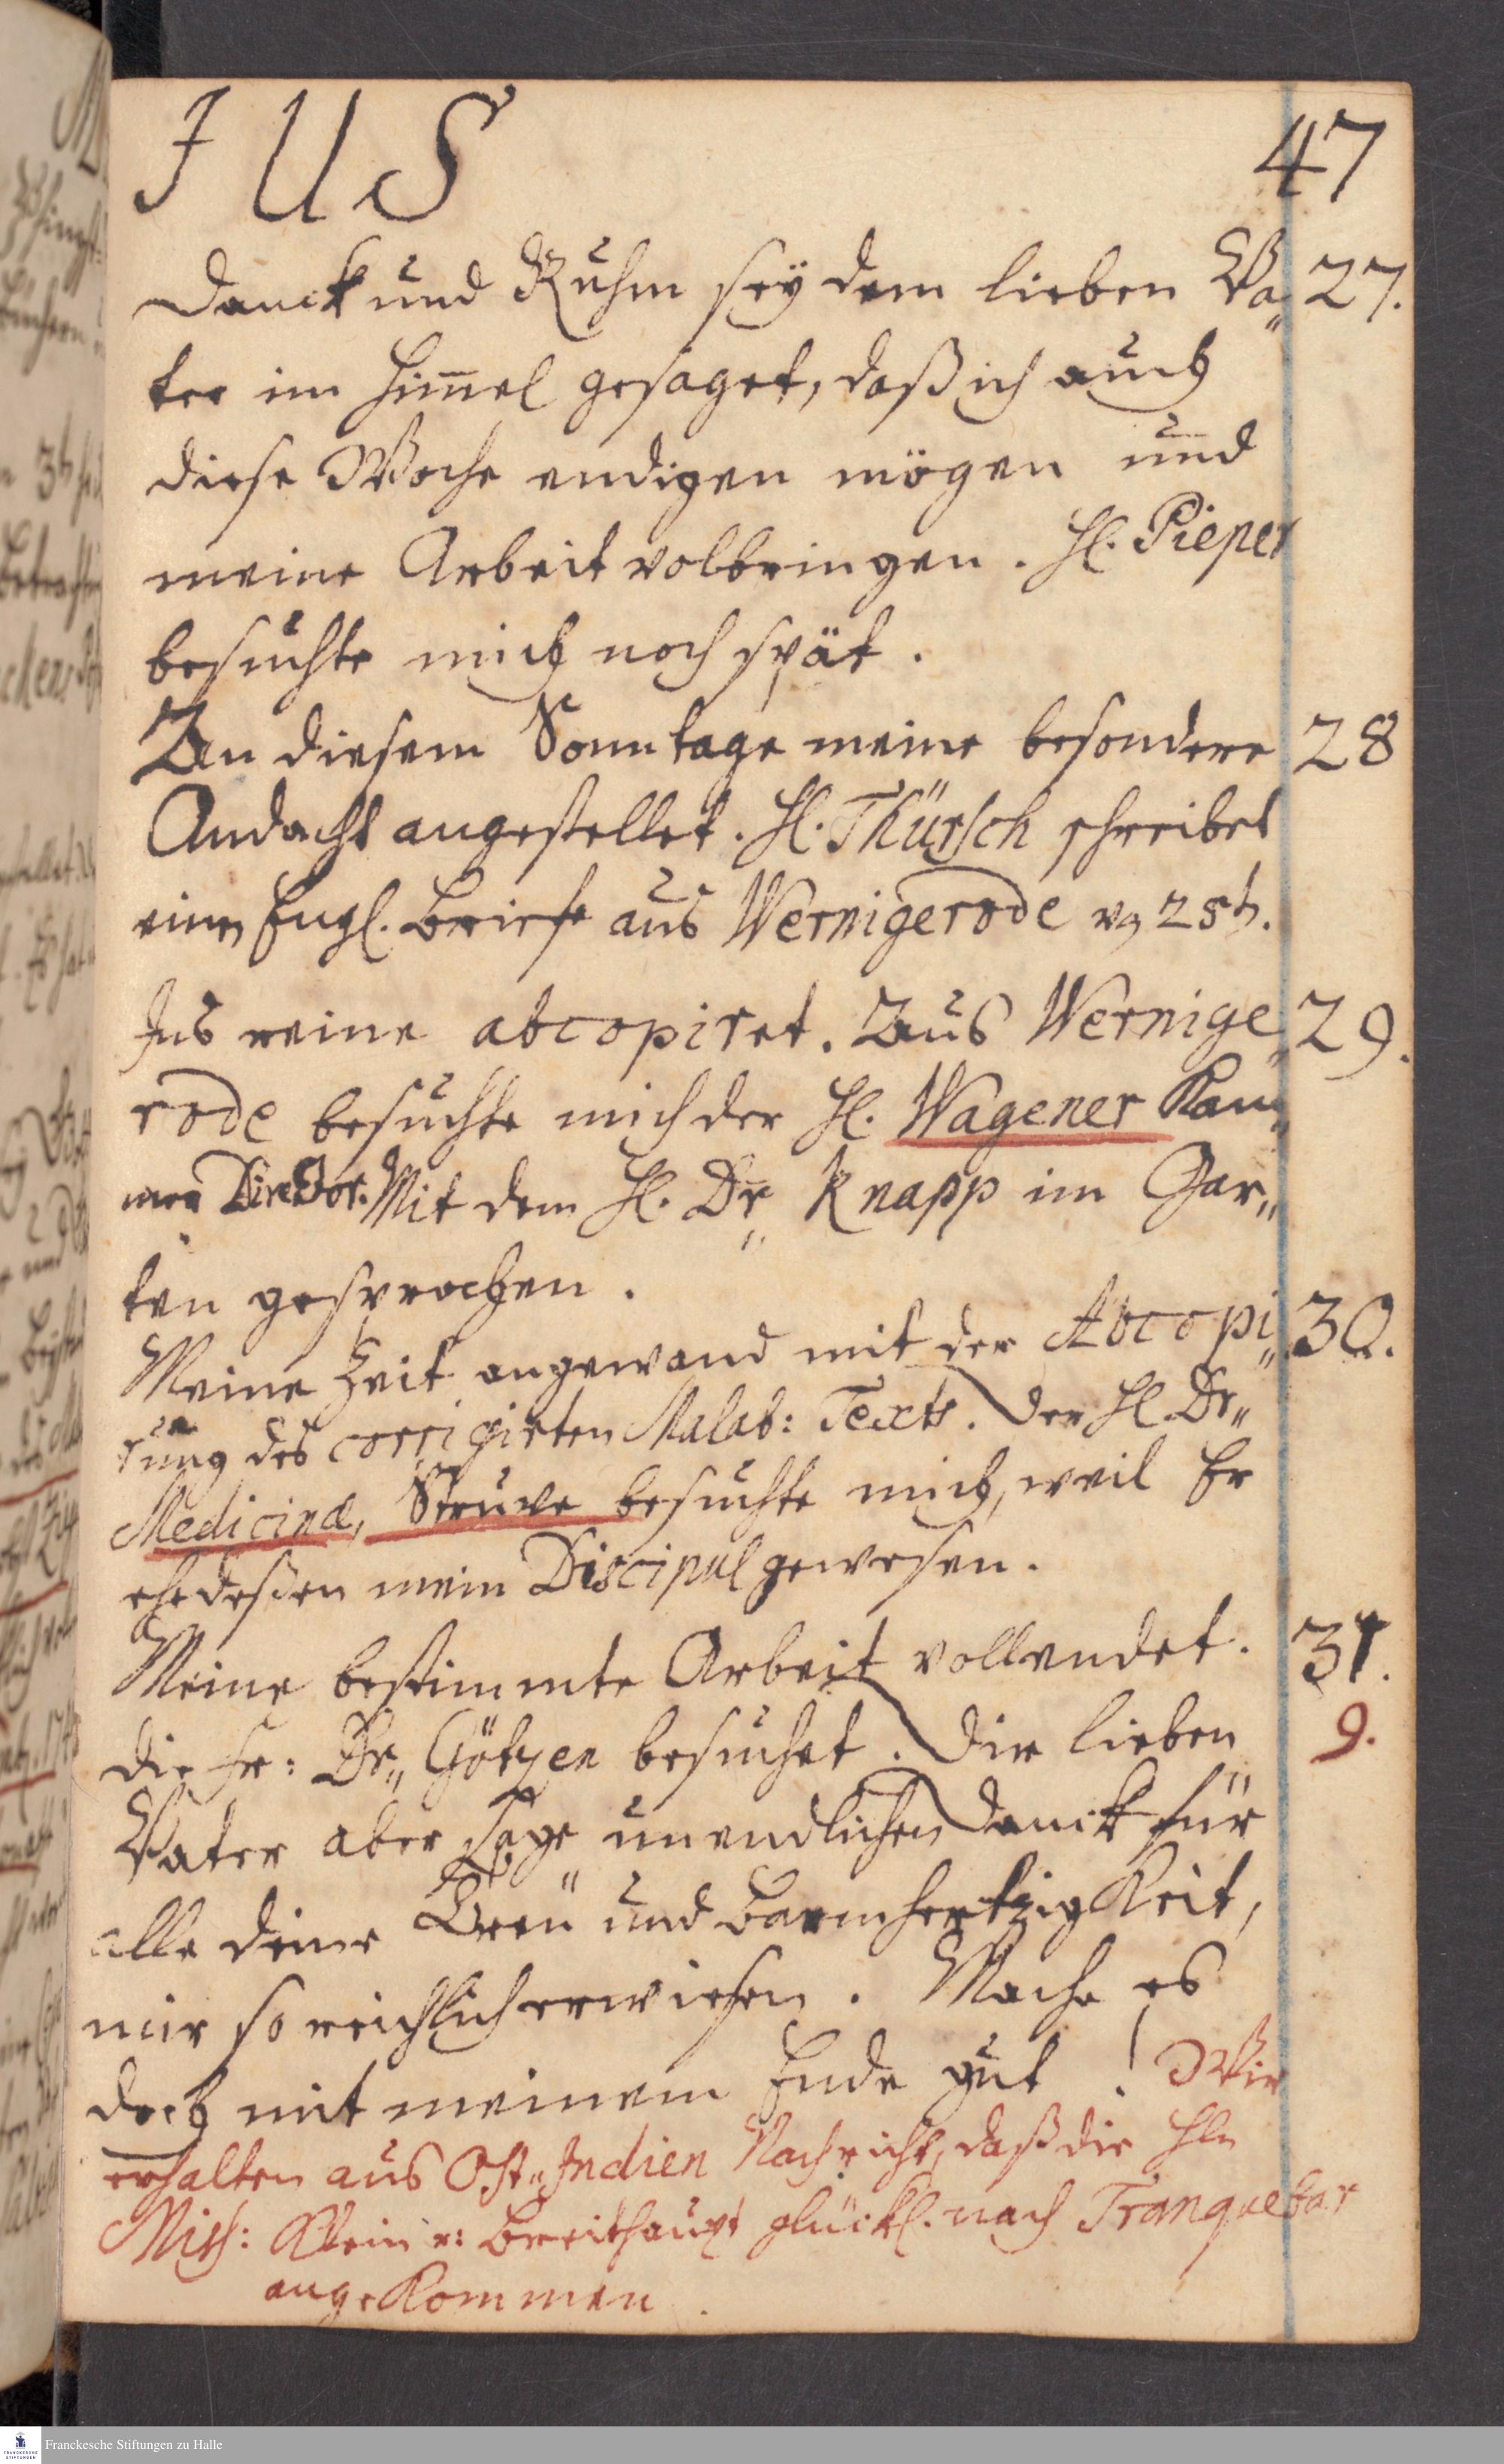 JUS 47
Danck und Ruhm sey dem lieben Va„ 27.
ter im Him̄el gesaget, daß ich auch
diese Woche endigen mögen und
meine Arbeit volbringen. H. Pieper
besuchte mich noch spät.
An diesem Sonntage meine besondere 28
Andacht angestellet. H. Thürsch schreibet
einen Engl. Brief aus Wernigerode
Ins reine abcopiret. Aus Wernige„ 29.
rode besuchte mich der H. Wagener Kam„
mer Director. Mit dem H. Dr„ Knapp im Gar„
ten gesprochen.
Meine Zeit angewand mit der Abcopi„ 30.
rung des corrigirten Malab: Texts. Der H. Dr„
Medicinæ, Struve besuchte mich, weil Er
ehedeßen mein Discipul gewesen.
Meine bestimmte Arbeit vollendet. 31.
die Fr: Dr„ Götzen besuchet. Dir lieben 9.
Vater aber sage unendlichen Danck für
alle deine Treu und Barmhertzigkeit,
mir so reichlich erwiesen. Mache es
doch mit meinem Ende gut! Wir
erhalten aus Ost„Indien Nachricht, daß die Hln
Miss: Klein u: Breithaupt glückl. nach Tranquebar
angekommen.
Franckesche Stiftungen zu Halle